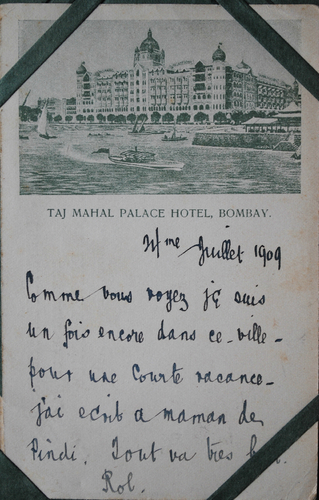 TAJ MAHAL PALACE HOTEL, BOMBAY.
Juillet 1909
Comme vous voyez je suis
un fois encore dans ce-ville-
pour une courte vacance-
j'ai ecrit a maman de
Pindi. Tout va très
Rob.